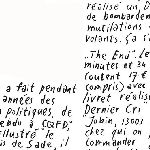 réalisé un D
de bombardem
mutilations
volants. Ça
"The End". le
minutes et 34
coûtent 17 €
compris) avec
livret réalis
Dernier Cri
Jobin, 13001
chez qui on
commander
a fait pendant
années des
politiques, de
illustré le
de Sade, il